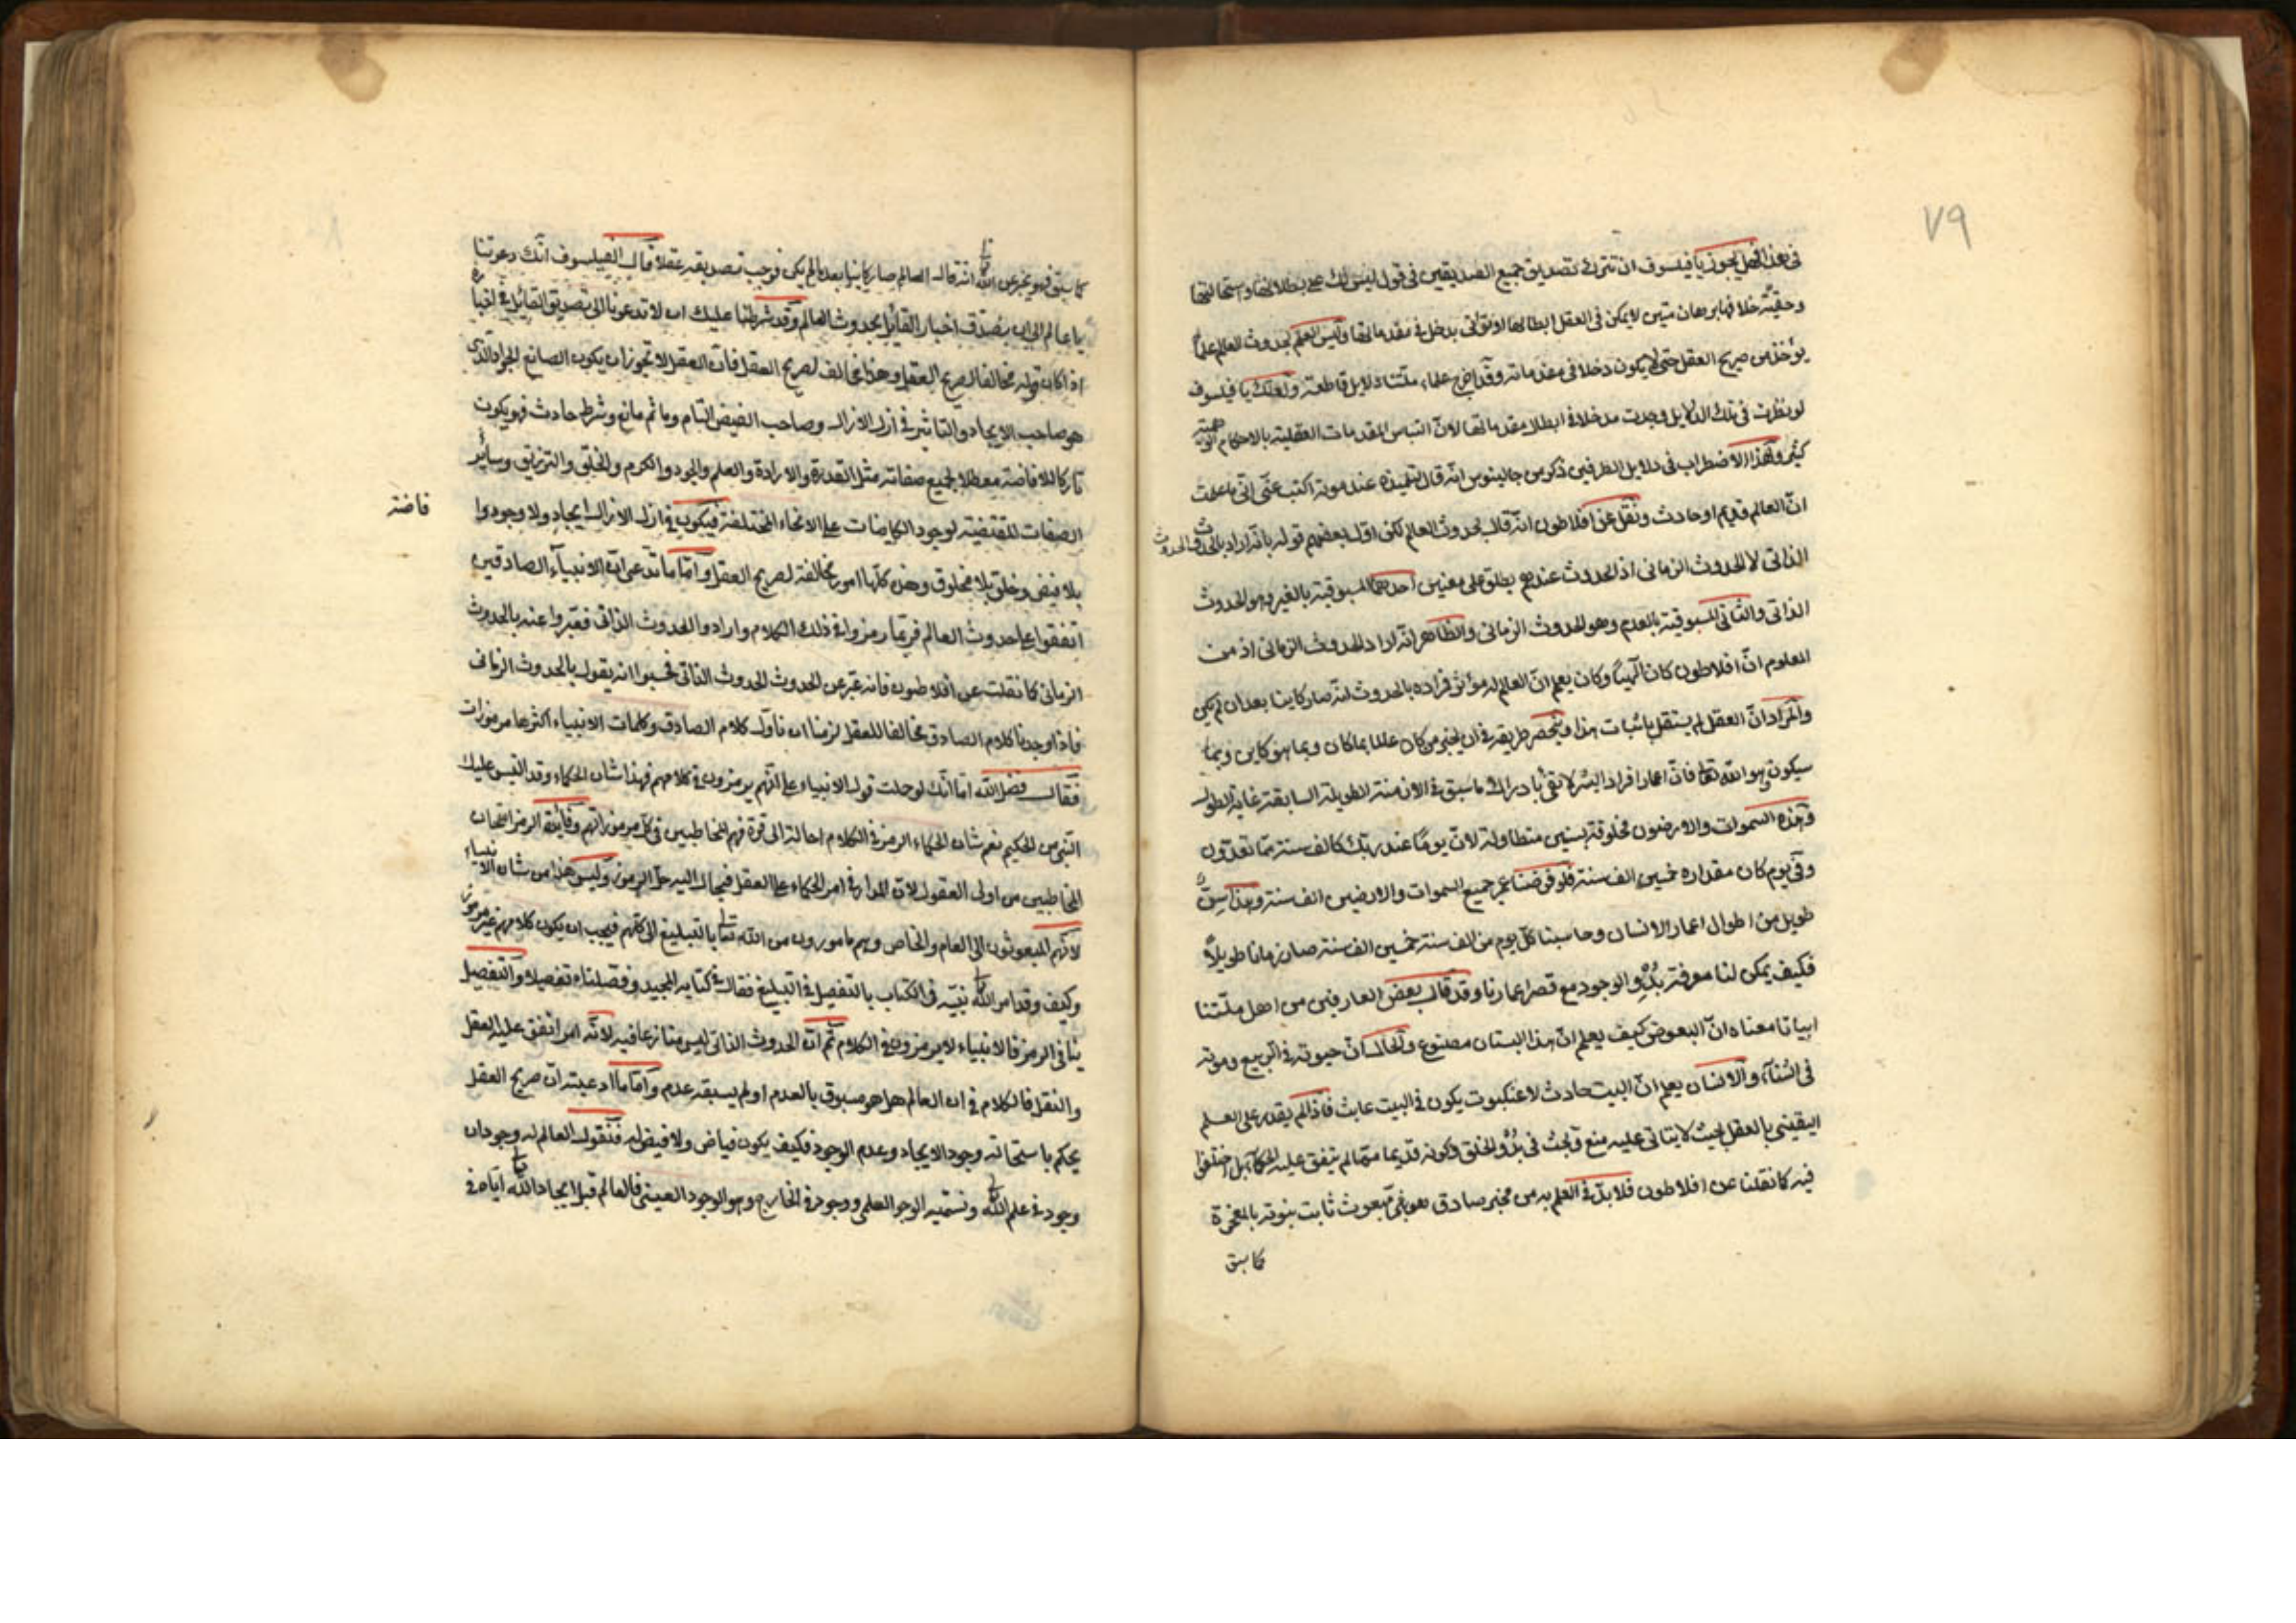 ٧٩
في هذا فهل يجوز يا فيلسوف ان تترك تصديق جميع الصديقين في قول ليس لك على بطلانها واستحالتها
وحقية خلافها برهان متين لا يمكن في العقل ابطالها او يؤتى بدخل في مقدماتها وليس العلم بحدوث العالم علما
يؤخذ من صريح العقل حتى لا يكون دخلا في مقدماته وقد اوضح علماء ملتنا دلايل قاطعة ولعلك يا فيلسوف
لو نظرت في تلك الدلايل وجدت مدخلا في ابطال مقدماتها لان التباس المقدمات العقلية بالاحكام الوهمية
كثير وهذا الاضطراب في دلايل الطرفين ذكر من جالينوس انه قال لتلميذه عند موته اكتب عني اني ما علمت
ان العالم قديم او حادث ونقل عن افلاطون انه قال بحدوث العالم لكن اول بعضهم قوله بانه اراد بالحدوث الحدوث
الذاتي لا الحدوث الزماني اذ الحدوث عندهم يطلق على معنيين احدهما المسبوقية بالغير وهو الحدوث
الذاتي والثاني المسبوقية بالعدم وهو الحدوث الزماني والظاهر انه اراد الحدوث الزماني اذ من
المعلوم ان افلاطون كان الهيا وكان يعلم ان العالم له مؤثر فمراده بالحدوث انه صار كاينا بعد ان لم يكن
والمراد ان العقل لم يستقل باثبات هذا وينحصر طريقه في ان يخبر من كان عالما بما كان وبما هو كاين وبما
سيكون وهو الله تعا فان اعمار افراد البشر لا تفي بادراك ما سبق في الازمنة الطويلة السابقة غاية الطول
وهذه السموات والارضون مخلوقة بسنين متطاولة لان يوما عند ربك كالف سنة مما تعدون
وفي يوم كان مقداره خمسين الف سنة فلو فرضنا عمر جميع السموات والارضين الف سنة وهذا
طويل من اطوال اعمار الانسان وحاسبنا كل يوم من الف سنة خمسين الف سنة صار زمانا طويلا
فكيف يمكن لنا معرفة بدو الوجود مع قصر اعمارنا وقد قال بعض العارفين من اهل ملتنا
ابياتا معناه ان البعوض كيف يعلم ان هذا البستان مصنوع والحال ان حيوته في الربيع وموته
في الشتاء والانسان يعلم ان البيت حادث لا عنكبوت يكون في البيت عابث فاذا لم يقدر على العلم
اليقيني بالعقل بحيث لا يتاتى عليه منع وبحث في بدو الخلق وكونه قديما مما لم يتفق عليه الحكماء بل اختلفوا
فيه كما نقلنا عن افلاطون فلا بد في العلم به من مخبر صادق هو نبي مبعوث ثابت نبوته بالمعجزة
كما سبق
كما سبق فهو يخبر عن الله تعا انه قال العالم صار كاينا بعد ما لم يكن فوجب تصديقه عقلا قال الفيلسوف انك دعوتنا
يا عالم الى ان نصدق اخبار القائل بحدوث العالم وقد شرطنا عليك ان لا تدعونا الى تصديق القائل في اخباره
اذا كان قوله مخالفا لصريح العقل وهذا مخالف لصريح العقل فان العقل لا تجوز ان يكون الصانع الجواد الذي
هو صاحب الايجاد والتاثير في ازل الازال وصاحب الفيض التام وما ثم مانع وشرط حادث فهو يكون
تاركا للافاضة معطلا لجميع صفاته مثل القدرة والارادة والعلم والجود والكرم والخلق والترزيق وساير
الصفات المقتضية لوجود الكاينات على الانحاء المختلفة فيكون في ازل الازال ايجاد ولا وجود وافاضة
بلا فيض وخلق بلا مخلوق وهذه كلها امور مخالفة لصريح العقل واما ما تدعى ان الانبياء الصادقين
اتفقوا على حدوث العالم فربما رمزوا في ذلك الكلام وارادوا الحدوث الذاتي فعبروا عنه بالحدوث
الزماني كما نقلت عن افلاطون فانه عبر عن الحدوث الحدوث الذاتي فحسبوا انه يقول بالحدوث الزماني
فاذا وجدنا كلام الصادق مخالفا للعقل لزمنا ان نأول كلام الصادق وكلمات الانبياء اكثرها مرموزات
فقال فضل الله اما انك لو حملت قول الانبياء على انهم يرمزون في كلامهم فهذا شان الحكماء وقد التبس عليك
النبي من الحكيم نعم شان الحكماء الرمز في الكلام احالة الى قوة فهم المخاطبين في كل مرموزاتهم وفائدة الرمز امتحان
المخاطبين من اولى العقول لان المدار في امر الحكماء على العقل فيحال اليه حل الرمز وليس هذا من شان الانبياء
لانهم المبعوثون الى العام والخاص وهم مامورون من الله تعا بالتبليغ الى كلهم فيجب ان يكون كلامهم غير مرموز
وكيف وقد امر الله تعا نبيه في الكتاب بالتفصيل في التبليغ فقال في كتابه المجيد وفصلناه تفصيلا والتفصيل
ينافي الرمز فالانبياء لا يرمزون في الكلام ثم ان الحدوث الذاتي ليس متنازعا فيه لانه امر اتفق عليه العقل
والنقل فالكلام في ان العالم هل هو مسبوق بالعدم او لم يسبقه عدم واما ما ادعيته ان صريح العقل
يحكم باستحالة وجود الايجاد وعدم الوجود فكيف يكون فياض ولا فيض له فنقول العالم له وجودان
وجود في علم الله تعا ونسميه الوجود العلمي ووجود في الخارج وهو الوجود العيني فالعالم قبل ايجاد الله تعا اياه في